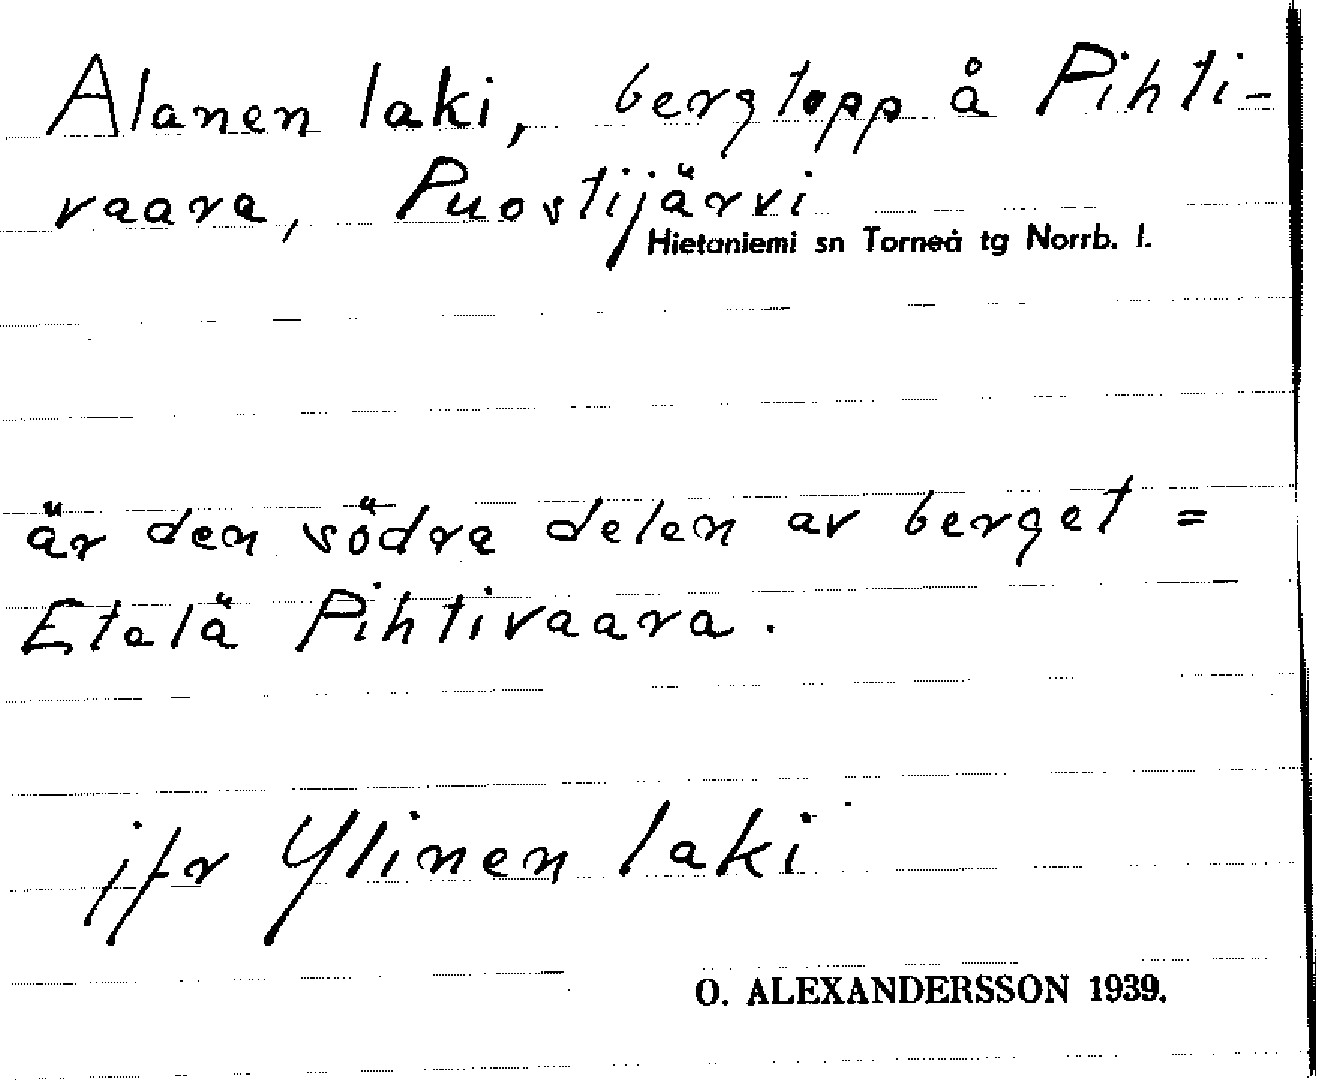 Alanen laki, bergtopp å Pihti-
vaara, Puostijärvi
Hietaniemi sn Torneå tg Norrb. l.
är den södra delen av berget =
Etelä Pihtivaara.
jfr Ylinen laki
O. ALEXANDERSSON 1939.